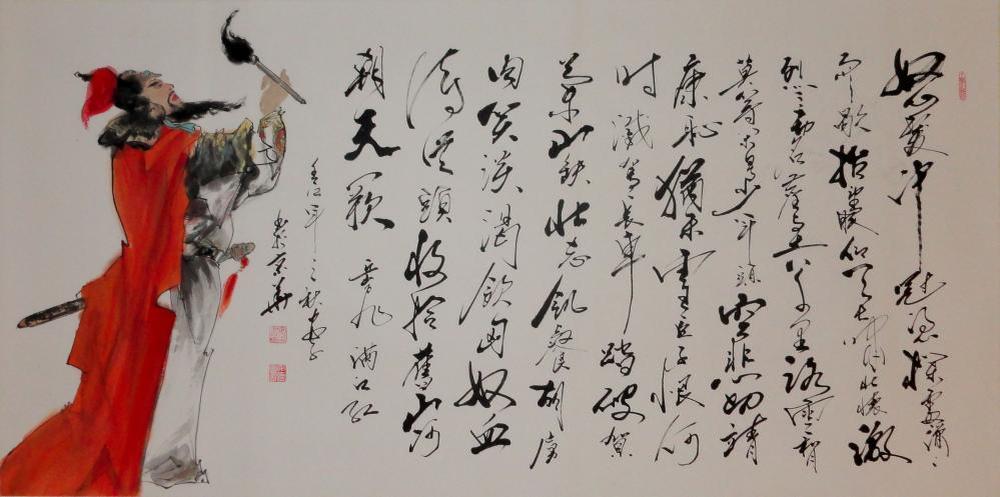 怒髮冲冠凭欄處瀟々
雨歇抬望眼仰天长啸壮懷激
烈三十功名塵与土八千里路雲和月
莫等閑白了少年頭空悲切靖
康恥猶未雪臣子恨何
时滅駕長車踏破賀
蘭山缺壮志飢餐胡虜
肉笑談渴飲匈奴血
待從頭收拾舊山河
朝天闕 岳飛滿江紅
年之秋
京華